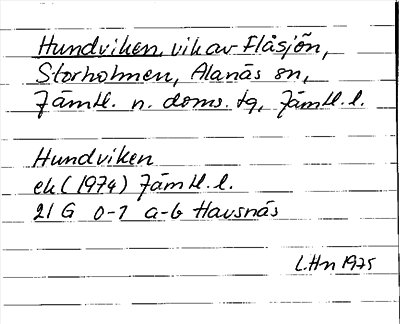 Hundviken, vik av Flåsjön,
Storholmen, Alanäs sn,
Jämtl. n. doms. tg, Jämtl. l.
Hundviken
ek (1974) Jämtl. l.
21 G 0-1 a-b Havsnäs
L.Hn 1975